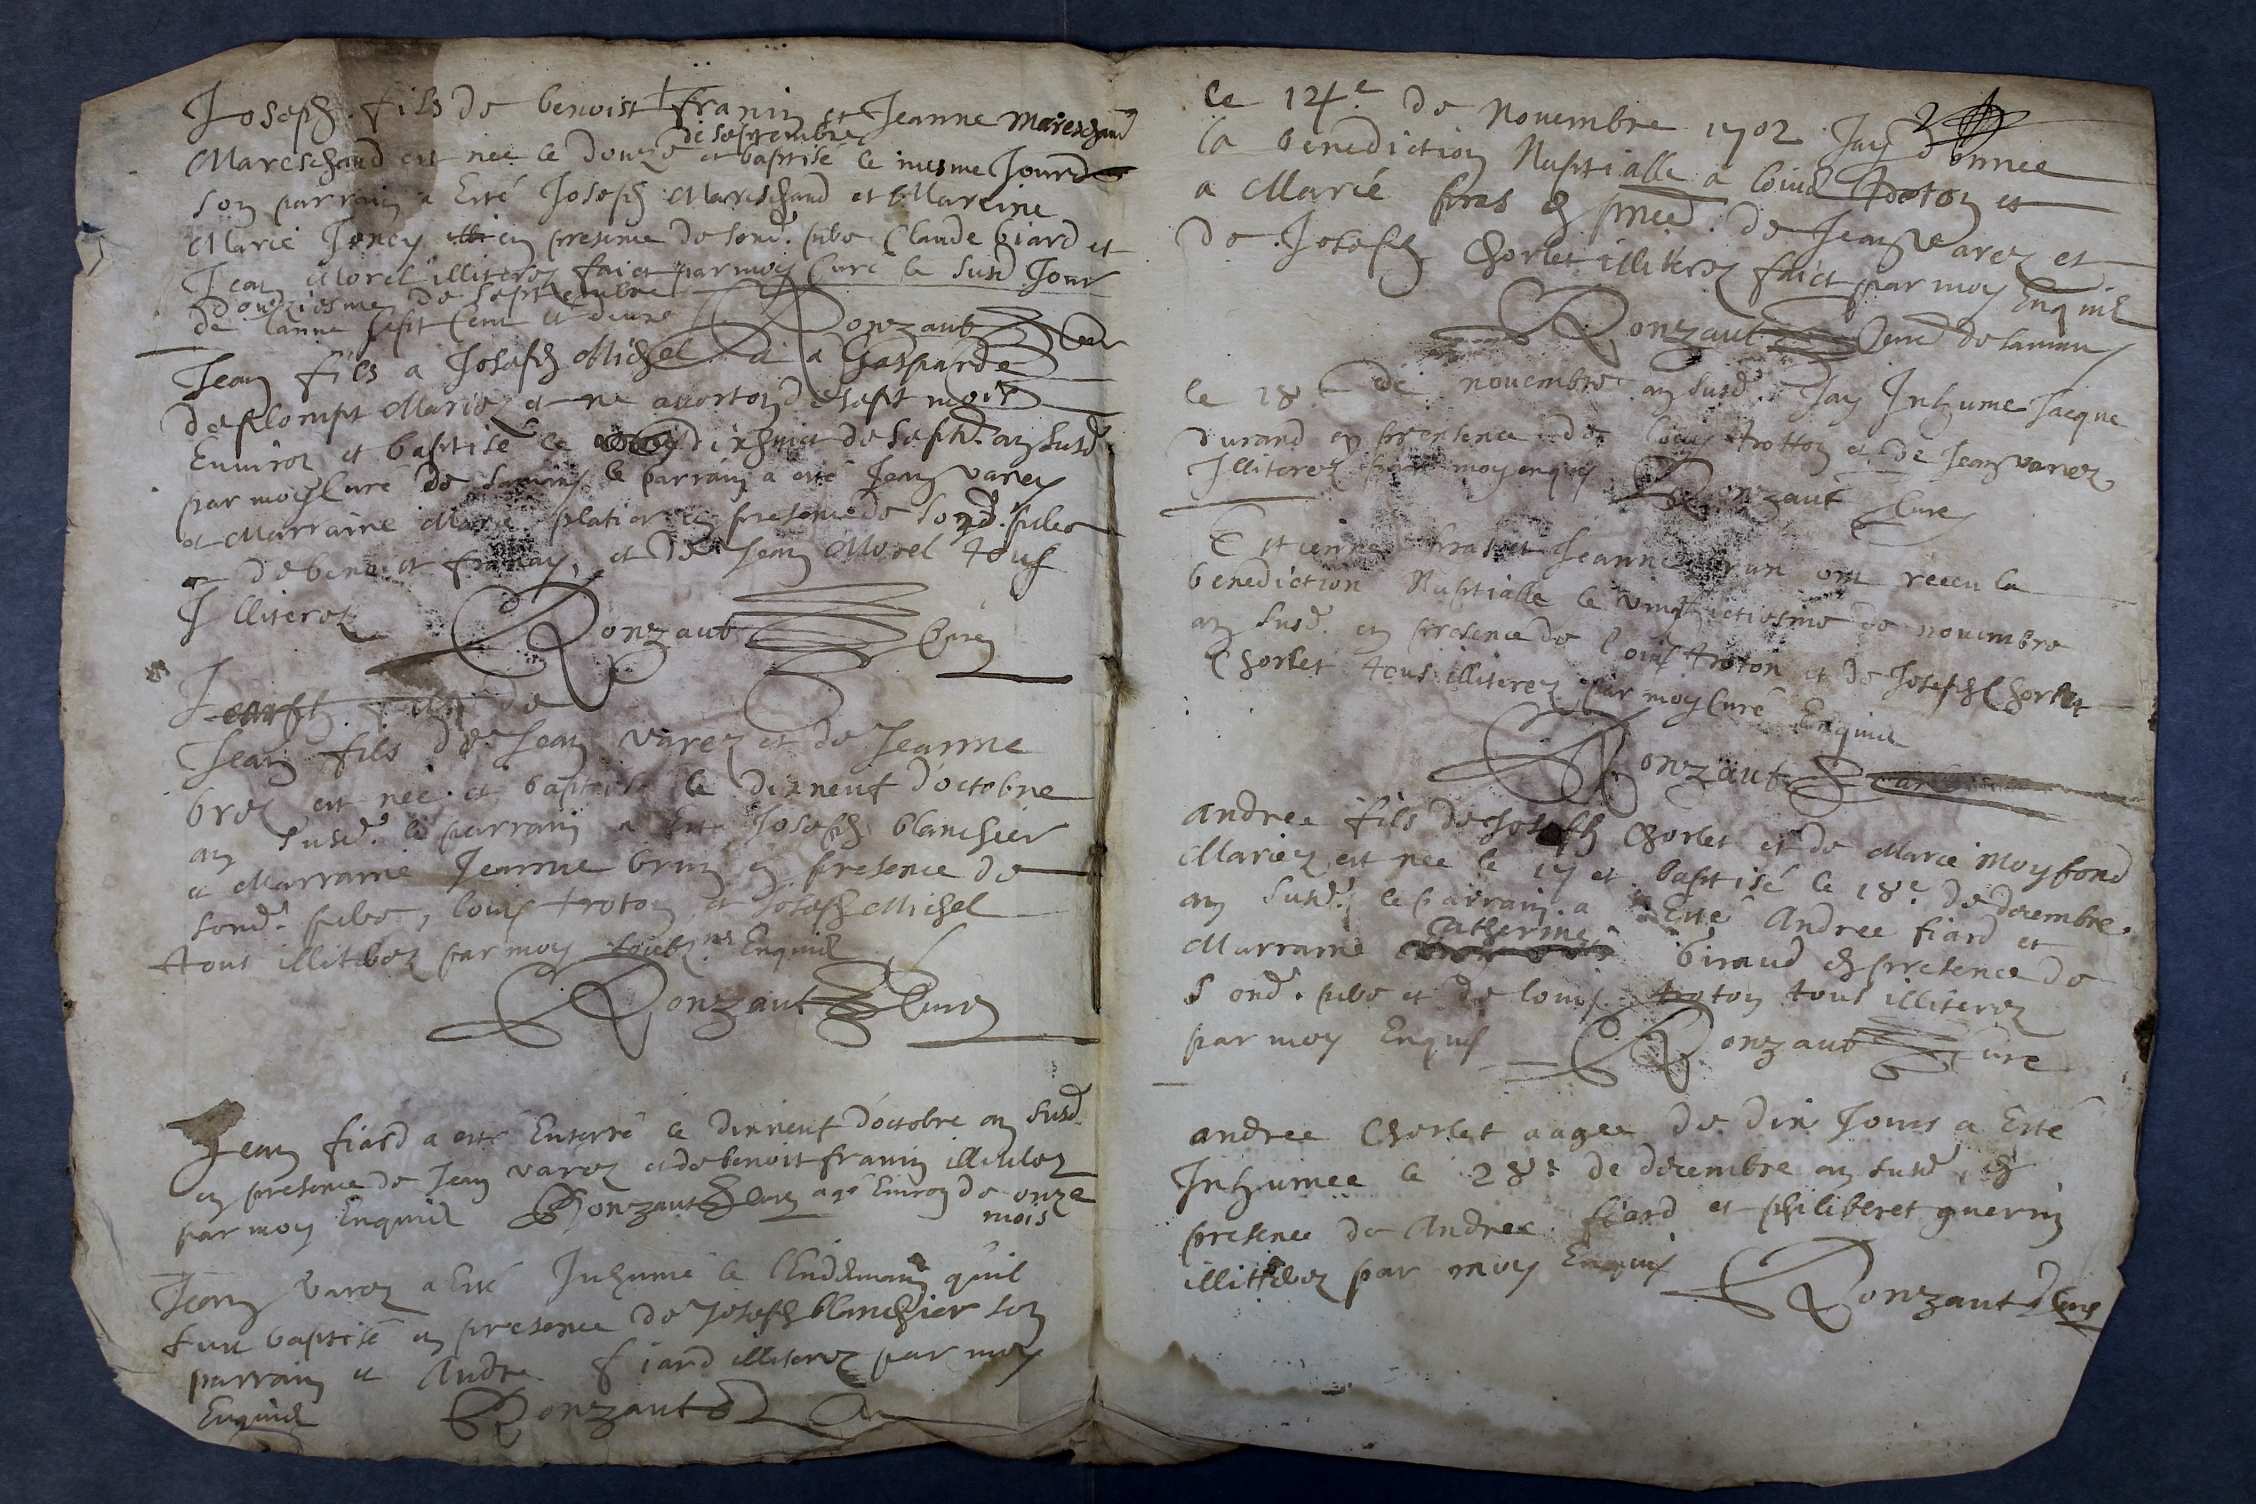 Joseph fils de benoist franin et Jeanne Mareschaud
Mareschaud est nee le douze de septembre et baptisé le mesme Jour
Son parrain a Esté Joseph Mareschaud et Mareine
Marie en presence de sond. pere Claude giard et
Jean Morel illiterez faict par moy Curé le susd Jour
douziesme de septembre
de lanne sept Cent et deux Ronzaut
Jean fils a Joseph Michel et a Gasparde
Mariez et ne auorton de sept mois
Enuiron et baptisé le dixhuict de sept. an susd
par moy Curé de le parrain a esté Jean varey
et Marraine Marie platier en presence de sond. pere
et de benoit franay, et de Jean Morel tous
Illiterez Ronzaut Curé
fils de
Jean fils de Jean varez et de Jeanne
brez est née et baptisé le dixneuf d'octobre
an susd. le parrain a Esté Joseph blanchier
et Marraine Jeanne brun en presence de
sond. pere, louis troton et Joseph Michel
tous illiterez par moy Enquis
Ronzaut Curé
Jean fiard a esté Enterré le dixneuf d'octobre an susd.
en presence de Jean varez et de benoit franin illiterez
par moy Enquis Ronzaut Curé agé Enuiron de onze
mois
Jean varez a Esté Inhumé le lendemain quil
fut baptisé en presence de Joseph blanchier son
parrain et Andre fiard illiterez par moy
Enquis Ronzaut
Le 14e de Nouembre 1702 Jay donnee
la benediction Nuptialle a louis troton et
a Marie bras en de Jean Varez et
de Joseph Chorlet illiterez faict par moy Enquis
Ronzaut Curé de
le 18 de nouembre an susd. Jay Inhume Jacque
durand en presence de louis trotton et de Jean varez
Illiterez par moy enquis Ronzaut Curé
Estienne bras et Jeanne brun ont receu la
benediction Nuptialle le de nouembre
an susd. en presence de louis troton et de Joseph Chorlet
Chorlet tous illiterez par moy Curé Enquis
Ronzaut
andree fils de Joseph Chorlet et de Marie moyfond
Mariez est nee le 17 et baptisé le 18e de decembre.
an susd. le parrain a Esté Andree fiard et
Marraine Catherine giraud en presence de
sond. pere et de louis troton tous illiterez
par moy Enquis Ronzaut Curé
andree Chorlet aagee de dix Jours a Esté
Inhumee le 28e de decembre an susd en
presence de Andree fiard et philiberet guerin
illiterez par moy Enquis
Ronzaut Curé